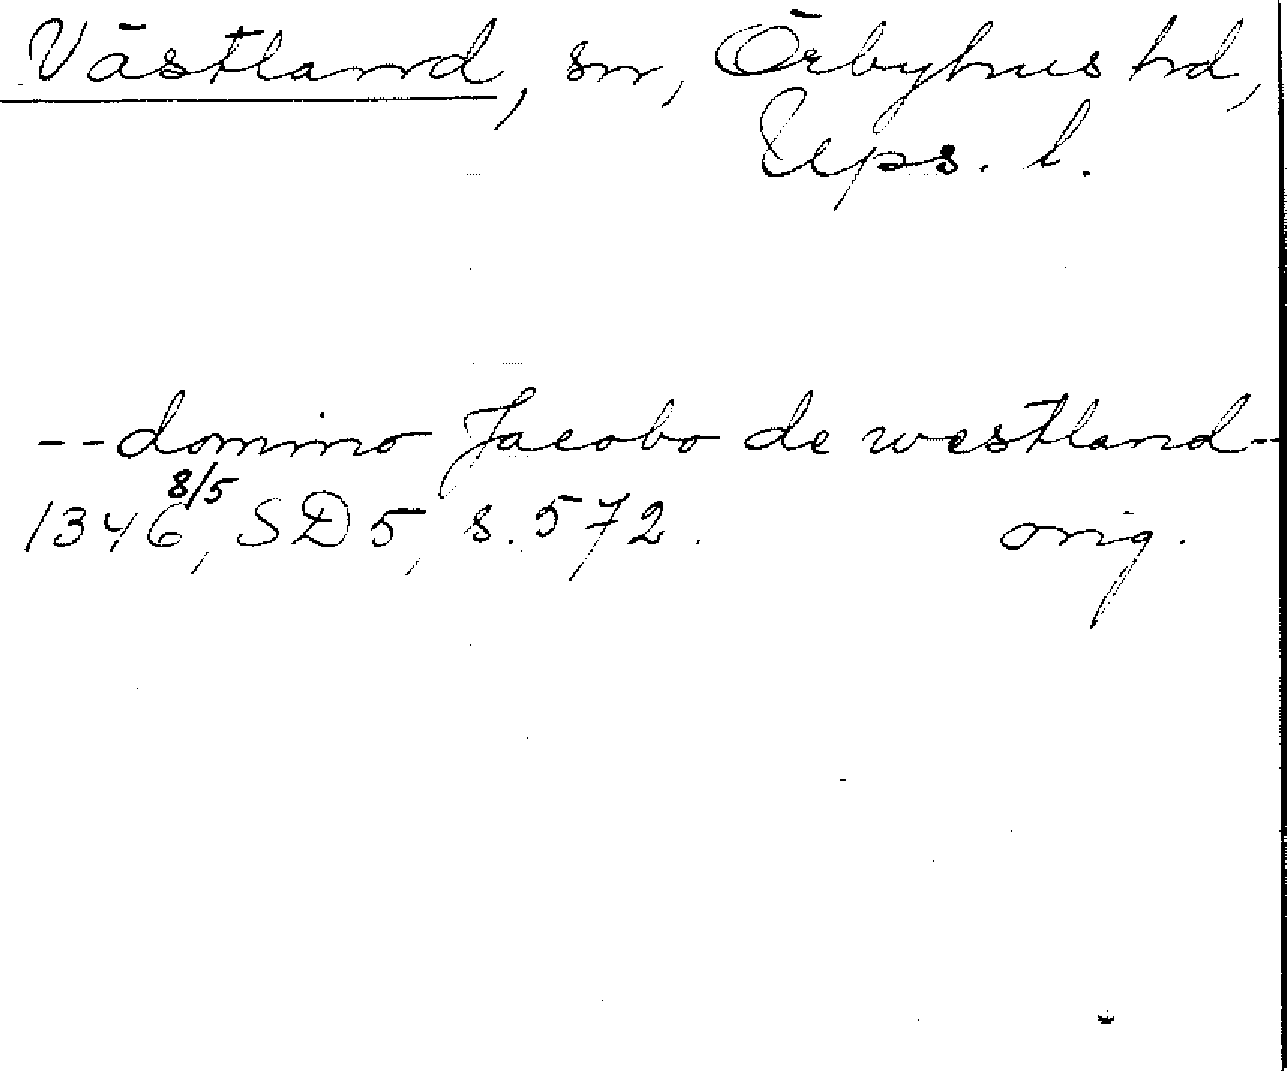 Västland, sn, Örbyhus hd,
Ups. l.
-- domino Jacobo de westland -
1346 8/5, SD 5, s. 572. orig.